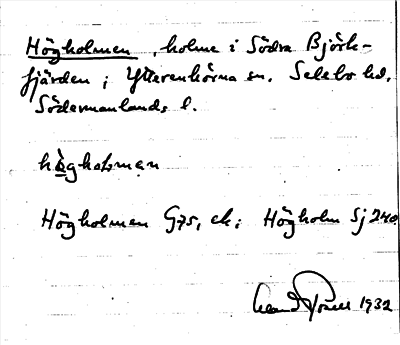 Högholmen, holme i Södra Björk-
fjärden i Ytterenhörna sn. Selebo hd.
Södermanlands l.
högholman
Högholmen G75, ek; Högholm Sj 240
1932